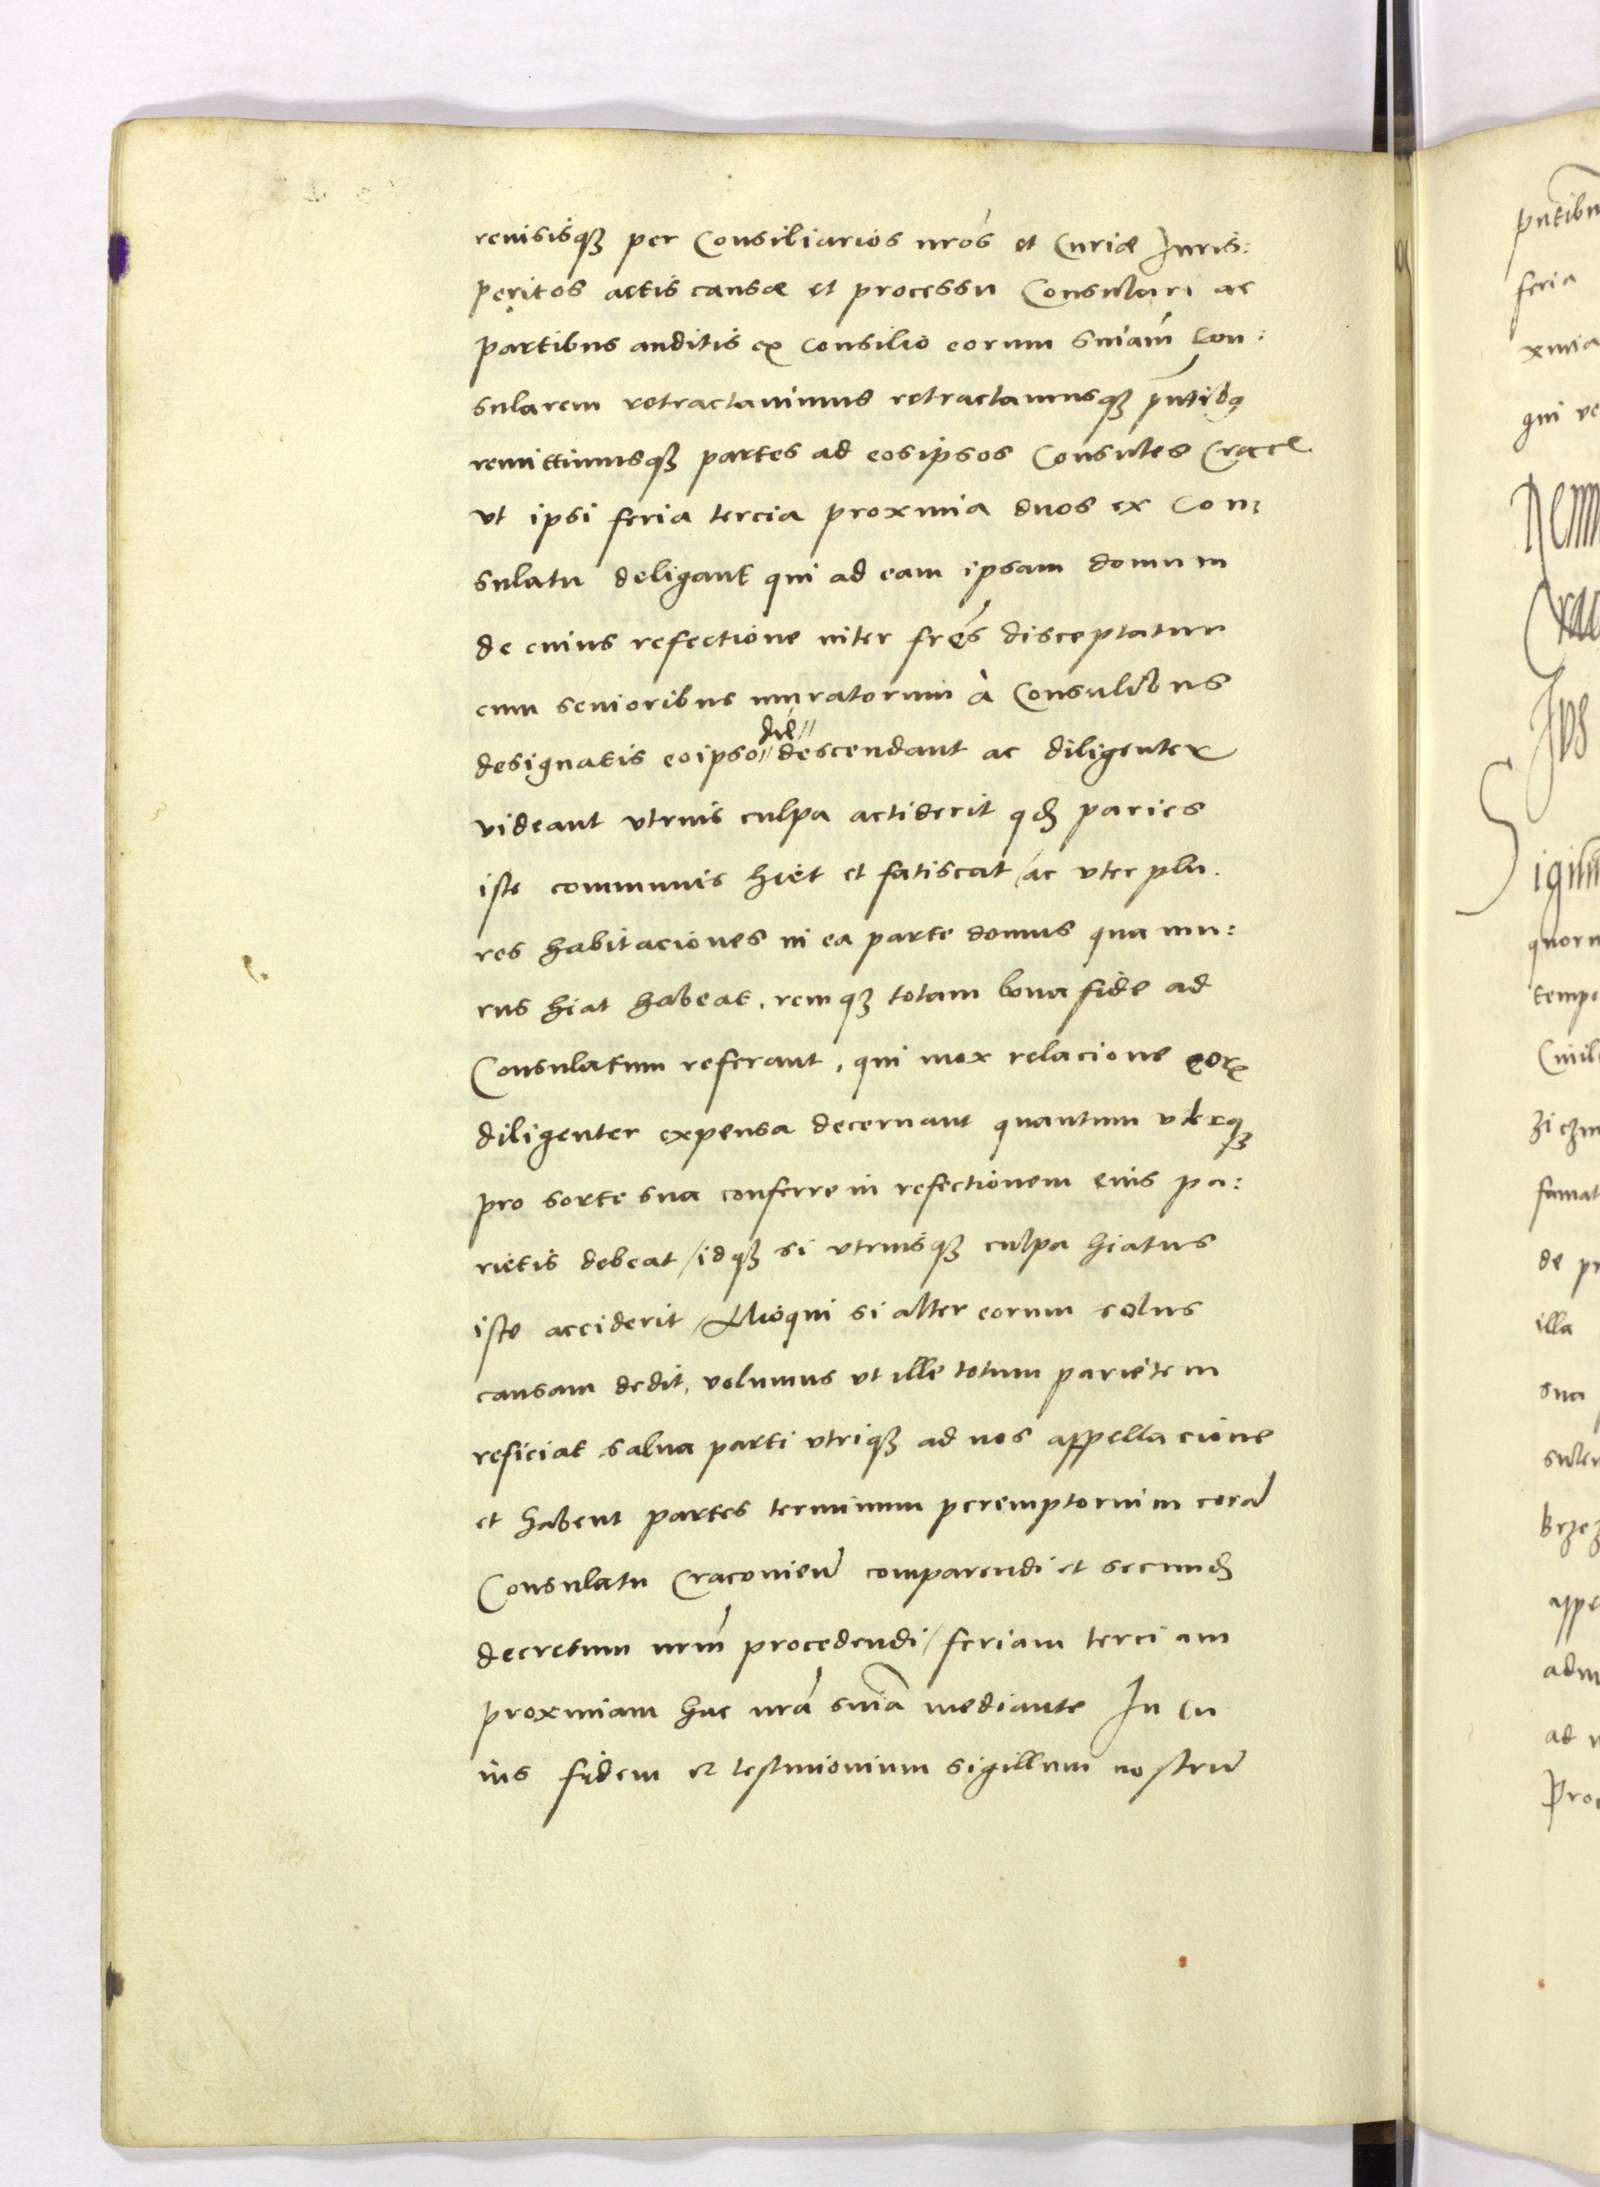 reuisisq₃ per Consiliarios nrõs et Curiæ Juris:
peritos actis causæ et processu Consulari ac
partibus auditis ex consilio eorum sniam̃ Con:
sularem retractauimus retractamusq₃ pñtibꝫ
remittimusq₃ partes ad eosipsos Consules Cracc
vt ipsi feria tercia proxima duos ex Con:
sulatu deligant qui ad eam ipsam domum
de cuius refectione inter frẽs disceptatur
cum senioribus muratorum à Consulibus
designatis eoipso // die // descendant ac diligenter
videant vtrius culpa acciderit qđ paries
iste communis hiet et fatiscat / ac vter plu.
res habitaciones in ea parte domus qua mu:
rus hiat habeat, remq₃ totam bona fide ad
Consulatum referant, qui mox relacione eorꝝ
diligenter expensa decernant quantum vterq₃
pro sorte sua conferre in refectionem eius pa:
rietis debeat / idq₃ si vtriusq₃ culpa hiatus
iste acciderit / Alioqui si alter eorum solus
causam dedit, volumus vt ille totum parietem
reficiat salua parti vtriq₃ ad nos appellacione
et habent partes terminum peremptorium corã
Consulatu Cracouieñ comparendi et secundũ
decretum nrm̃ procedendi / feriam terciam
proximam hac nrã sniã mediante In cu
ius fidem et testimonium sigillum nostrũ
pñtibu
feria
qui ve
Cra
Sigillu
quoru
tempo
Ciuil
famat
de pr
illa
sua
appe
ad
Proc